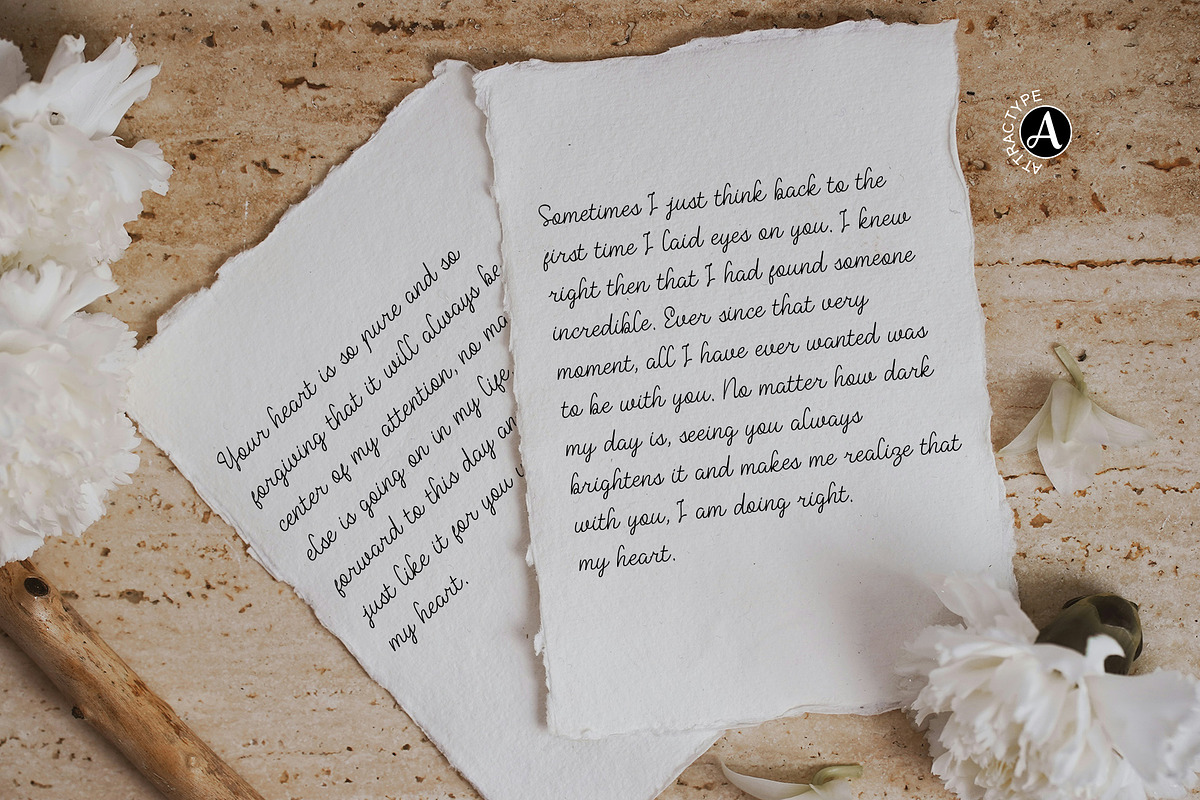 Your heart is so pure and so
forgiving that it will always be
center of my attention, no ma
else is going on in my life.
forward to this day an
just like it for you
my heart.
Sometimes I just think back to the
first time I laid eyes on you. I knew
right then that I had found someone
incredible. Ever since that very
moment, all I have ever wanted was
to be with you. No matter how dark
my day is, seeing you always
brightens it and makes me realize that
with you, I am doing right.
my heart.
ATTRACTYPE
A